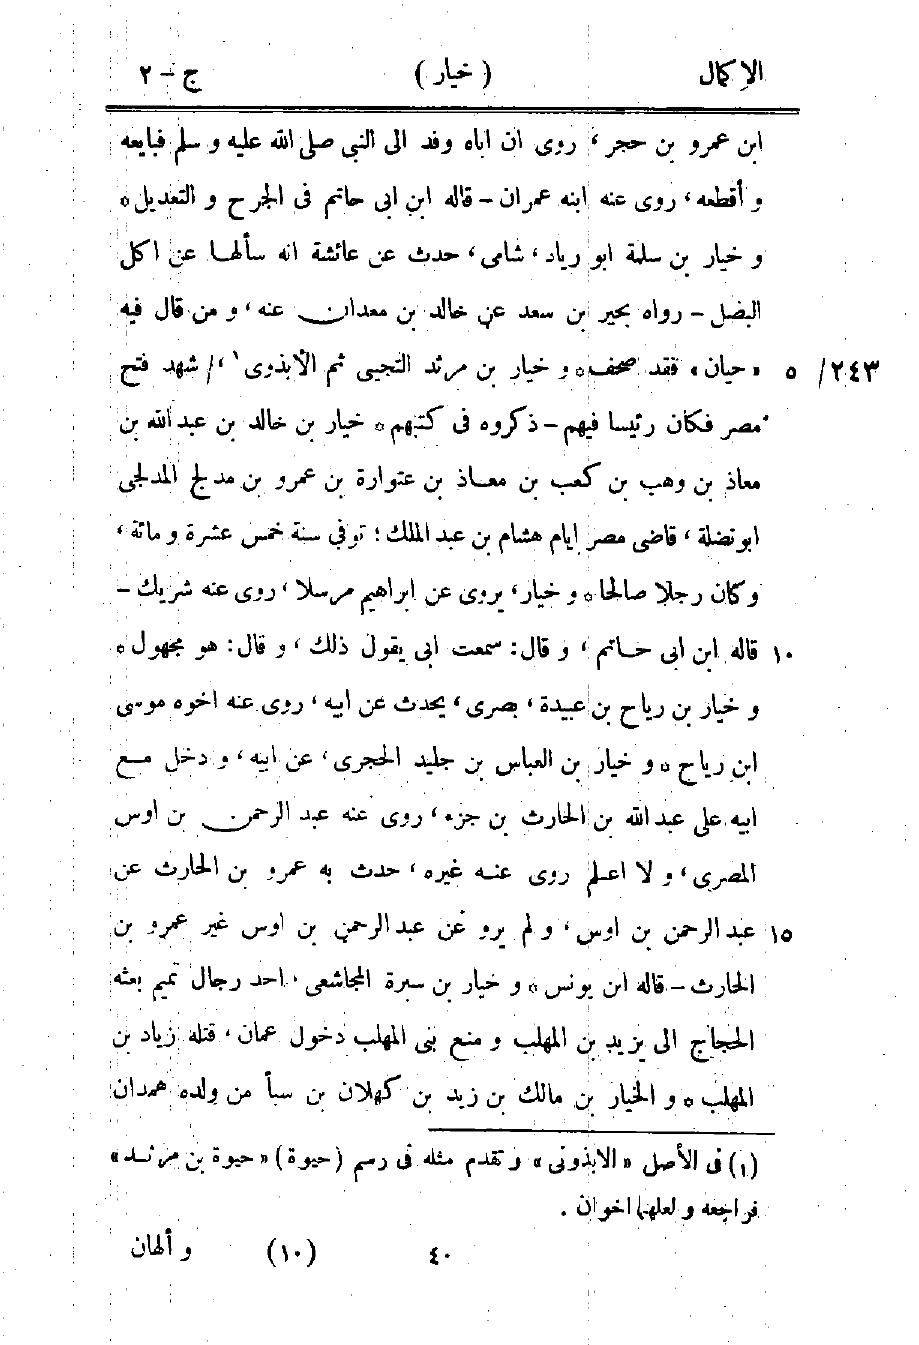 الإكمال ( خيار ) ج – ٢
ابن عمرو بن حجر ، روى ان اباه وفد الى النبى صلى الله عليه و سلم فبايعه
و أقطعه ، روى عنه ابنه عمران – قاله ابن ابى حاتم فى الجرح و التعديل ٥
و خيار بن سلمة ابو رياد ، شامى ، حدث عن عائشة انه سألها عن اكل
البصل – رواه بحير بن سعد عن خالد بن معدان عنه ، و من قال فيه
٢٤٣/ ٥ « حيان » فقد صحف ٥ و خيار بن مرثد التجيبى ثم الأبذوى ١ ، / شهد فتح
مصر فكان رئيسا فيهم – ذكروه فى كتبهم ٥ خيار بن خالد بن عبد الله بن
معاذ بن وهب بن كعب بن معاذ بن عتوارة بن عمرو بن مدلج المدلجى
ابو نضلة ، قاضى مصر ايام هشام بن عبد الملك ؛ توفى سنة خمس عشرة و مائة ،
و كان رجلا صالحا ٥ و خيار ، يروى عن ابراهيم مرسلا ، روى عنه شريك –
١٠ قاله ابن ابى حاتم ، و قال : سمعت ابى يقول ذلك ، و قال : هو مجهول ٥
و خيار بن رياح بن عبيدة ، بصرى ، يحدث عن ابيه ، روى عنه اخوه موسى
ابن رياح ٥ و خيار بن العباس بن جليد الحجرى ، عن ابيه ، و دخل مع
ابيه على عبد الله بن الحارث بن جزء ، روى عنه عبد الرحمن بن اوس
المصرى ، و لا اعلم روى عنه غيره ، حدث به عمرو بن الحارث عن
١٥ عبد الرحمن بن اوس ، و لم يرو عن عبد الرحمن بن اوس غير عمرو بن
الحارث – قاله ابن يونس ٥ و خيار بن سبرة المجاشعى ، احد رجال تميم بعثه
الحجاج الى يزيد بن المهلب و منع بنى المهلب دخول عمان ، قتله زياد بن
المهلب ٥ و الخيار بن مالك بن زيد بن كهلان بن سبأ من ولده همدان
(١) فى الأصل « الابذونى » و تقدم مثله فى رسم (حيوة) « حيوة بن مرثد »
فراجعه و لعلهما اخوان .
٤٠ (١٠) و ألهان